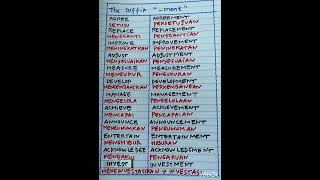 The suffix "-ment"
AGREE AGREEMENT
SETUJU PERSETUJUAN
REPLACE REPLACEMENT
MENGGANTI PENGGANTIAN
IMPROVE IMPROVEMENT
MENINGKATKAN PENINGKATAN
ADJUST ADJUSTMENT
MENYESUAIKAN PENYESUAIAN
MEASURE MEASUREMENT
MENGUKUR PENGUKURAN
DEVELOP DEVELOPMENT
MENGEMBANGKAN PERKEMBANGAN
MANAGE MANAGEMENT
MENGELOLA PENGELOLAAN
ACHIEVE ACHIEVEMENT
MENCAPAI PENCAPAIAN
ANNOUNCE ANNOUNCEMENT
MENGUMUMKAN PENGUMUMAN
ENTERTAIN ENTERTAINMENT
MENGHIBUR HIBURAN
ACKNOWLEDGE ACKNOWLEDGMENT
MENGAKUI PENGAKUAN
INVEST INVESTMENT
MENGINVESTASIKAN → INVESTASI